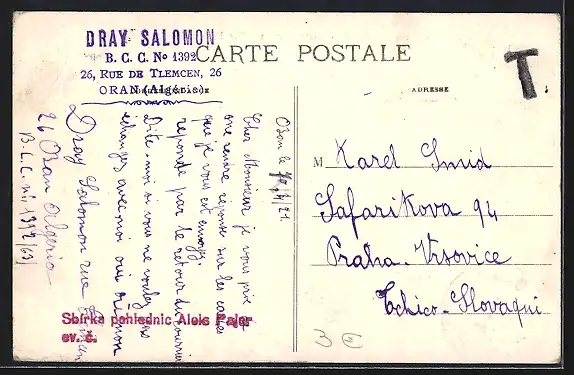 DRAY SALOMON
B. C. C. No 1392
26, RUE DE TLEMCEN, 26
ORAN (Algérie)
CARTE POSTALE
ADRESSE
T
Oran le
Cher Monsieur je vous prie
me rendre réponse sur les cartes
que je vous est envoyez.
reponde par le retour du courrier
Dite moi si vous ne voulez pas
échanger avec moi oui ou non
Dray Salomon rue Tlemcen
26 Oran Algérie
B.C.C. no 1392/63
M Karel Smid
Safarikova 94
Praha-Vrsovice
Tchico-Slovaqui
Sbírka pohlednic Aleis Pajer
ev. č.